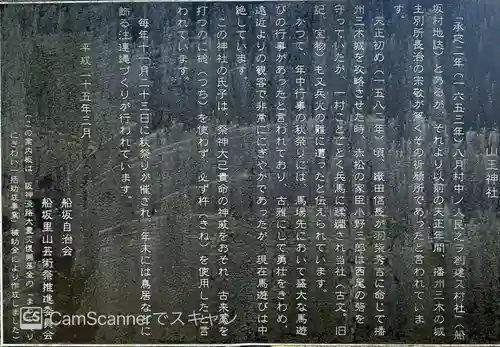 山王神社
「承応二年(一六五三年)八月村中ノ人民之ヲ創建ス村社(船
坂村地誌)とあるが、それより以前の天正年間、播州三木の城
主別所長治の崇敬が篤くその祈願所であったと言われていま
す。
天正初め(一五八二年)頃、織田信長が羽柴秀吉に命じて播
州三木城を攻略させた時、赤松の家臣小野三郎は西尾の砦を
守っていたが、一村ことごとく兵馬に蹂躙され当社(古文、旧
記、宝物)も又兵火の難に遭ったと伝えられています。
かつて、年中行事の秋祭りには、馬場先において盛大な馬遊
びの行事があったと言われており、古雅にして勇壮をきわめ、
遠近よりの観客で非常ににぎやかであったが、現在馬遊びは中
絶しています。
この神社の氏子は、祭神大己貴命の神威をおそれ、古来藁を
打つのに槌(つち)を使わず、必ず杵(きね)を使用したと言
われています。
毎年十一月二十三日に秋祭りが催され、年末には鳥居などに
飾る注連縄づくりが行われています。
平成二十五年三月
船坂自治会
船坂里山芸術祭推進委員会
(この案内板は、阪神淡路大震災復興基金の「まちの
にぎわい一括助成事業」補助金により作成しました)
CS CamScannerでスキャン